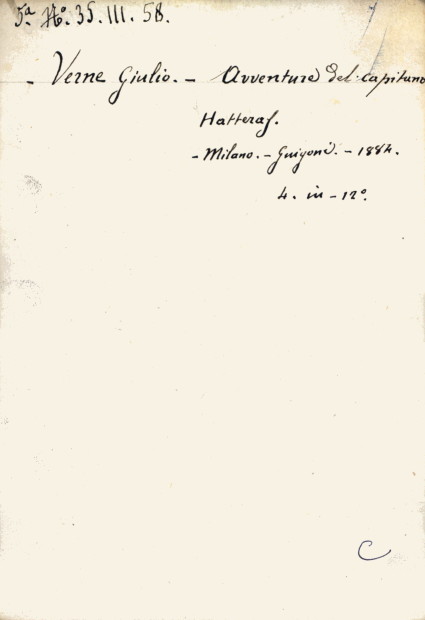 5.ª N.º 35. III. 58.
- Verne Giulio. - Avventure del capitano
Hatteras.
- Milano. - Guigoni. - 1884.
4. in - 12º.
C